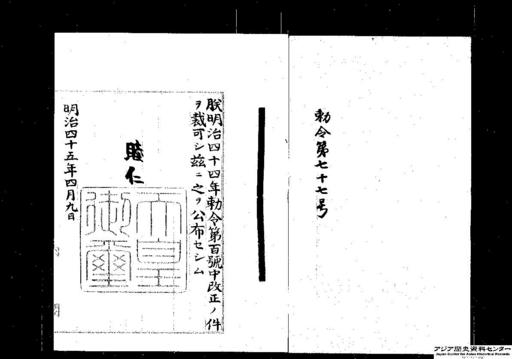 勅令第七十七号
朕明治四十四年勅令第百號中改正ノ件
ヲ裁可シ茲ニ之ヲ公布セシム
睦仁
天皇御璽
明治四十五年四月九日
アジア歴史資料センター
Japan Center for Asian Historical Records